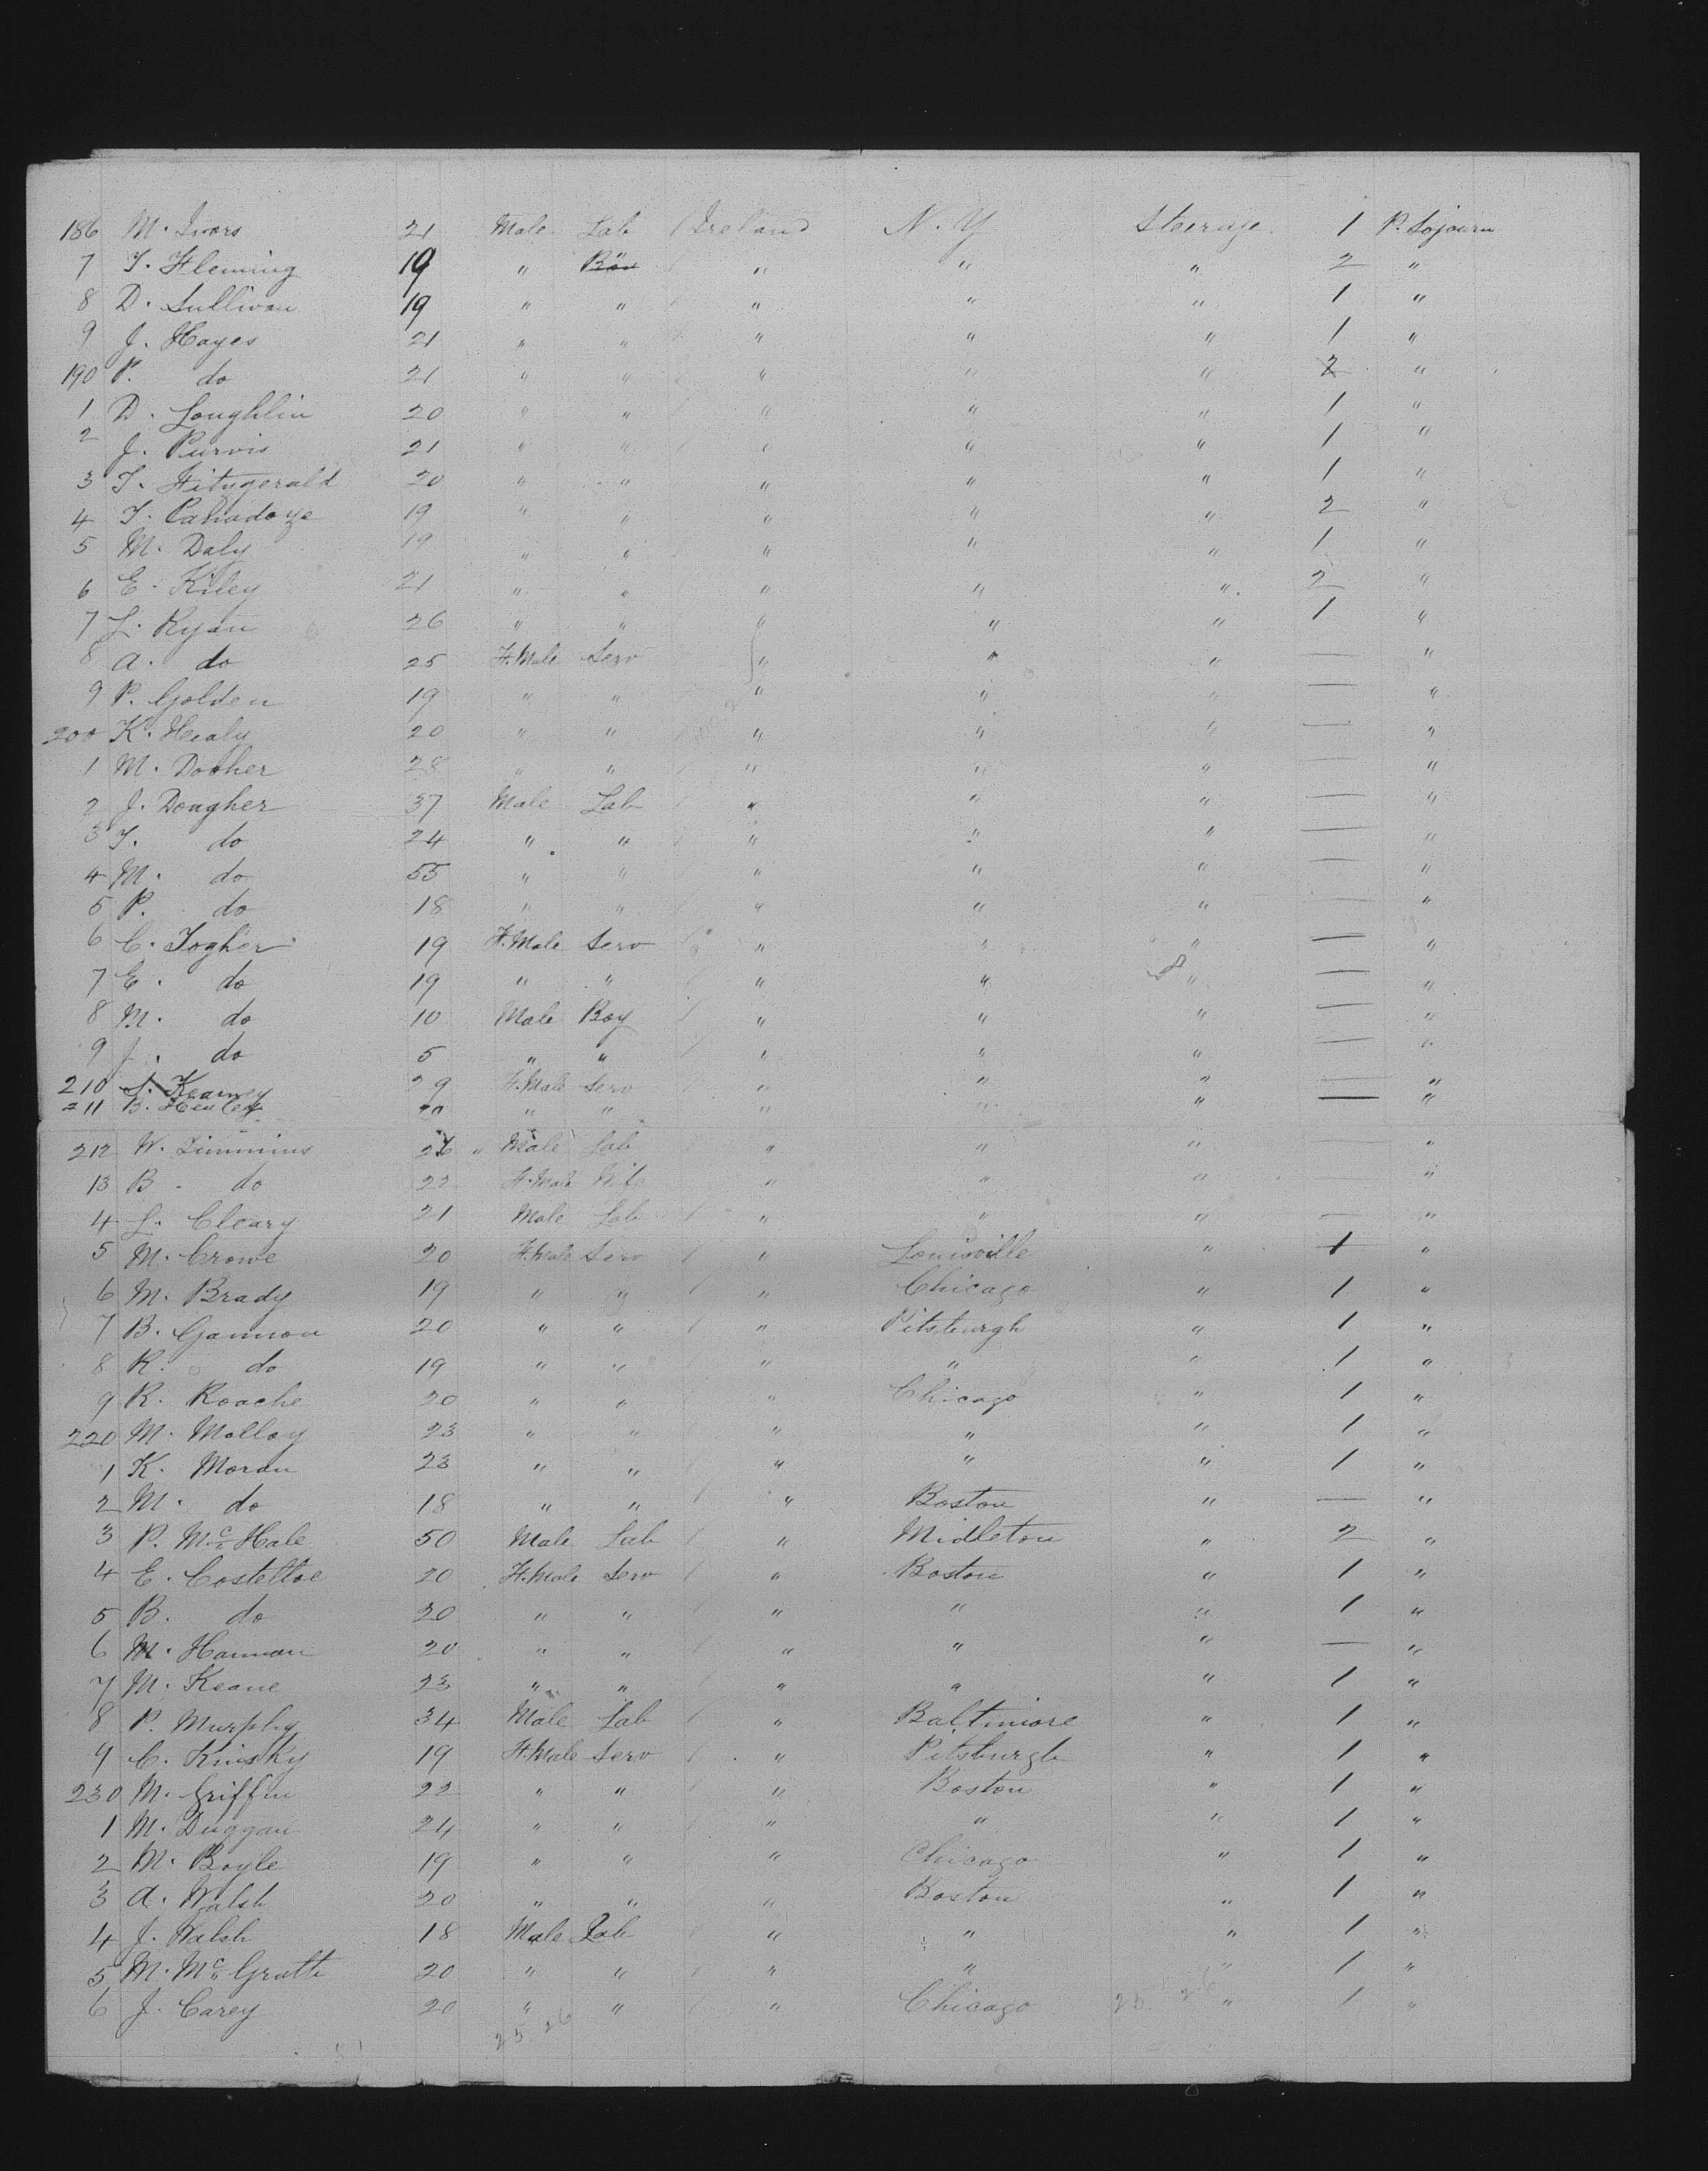 186 M. Ivors 21 Male Lab Ireland N. Y Steerage 1 P. Sojourn
7 T. Fleming 19 " " " " " 2 "
8 D. Sullivan 19 " " " " " 1 "
9 J. Hayes 21 " " " " " 1 "
190 P. do 21 " " " " " 2 "
1 D. Loughlin 20 " " " " " 1 "
2 J. Purvis 21 " " " " " 1 "
3 T. Fitzgerald 20 " " " " " 1 "
4 T. 19 " " " " " 2 "
5 M. Daly 19 " " " " " 1 "
6 E. Kiley 21 " " " " " 2 "
7 L. Ryan 26 " " " " " 1 "
8 A. do 25 F.Male Serv " " " — "
9 P. Golden 19 " " " " " — "
200 K. Healy 20 " " " " " — "
1 M. Dooher 28 " " " " " — "
2 J. Dougher 37 Male Lab " " " — "
3 T. do 24 " " " " " — "
4 M. do 55 " " " " " — "
5 P. do 18 " " " " " — "
6 C. Togher 19 F.Male Serv " " " — "
7 E. do 19 " " " " " — "
8 M. do 10 Male Boy " " " — "
9 J. do 5 " " " " " — "
210 Kearney 29 F.Male Serv " " " — "
211 B. Henley " " " " " — "
212 W. Timmins Male Lab " " " — "
13 B. do 22 F.Male Wife " " " — "
4 L. Cleary 21 Male Lab " " " — "
5 M. Crowe 20 F.Male Serv " Louisville " 1 "
6 M. Brady 19 " " " Chicago " 1 "
7 B. Gannon 20 " " " Pitsburgh " 1 "
8 R. do 19 " " " " " 1 "
9 R. Roache 20 " " " Chicago " 1 "
220 M. Molloy 23 " " " " " 1 "
1 K. Moran 23 " " " " " 1 "
2 M. do 18 " " " Boston " — "
3 P. McHale 50 Male Lab " Midleton " 2 "
4 E. Costelloe 20 F.Male Serv " Boston " 1 "
5 B. do 20 " " " " " 1 "
6 M. Hannan 20 " " " " " — "
7 M. Keane 23 " " " " " 1 "
8 P. Murphy 34 Male Lab " Baltimore " 1 "
9 C. Kinsky 19 F.Male Serv " Pitsburgh " 1 "
230 M. Griffin 22 " " " Boston " 1 "
1 M. Duggan 24 " " " " " 1 "
2 M. Boyle 19 " " " Chicago " 1 "
3 A. Walsh 20 " " " Boston " 1 "
4 J. Walsh 18 Male Lab " " " 1 "
5 M. McGrath 20 " " " " " 1 "
6 J. Carey 20 " " " Chicago " 1 "
25 26